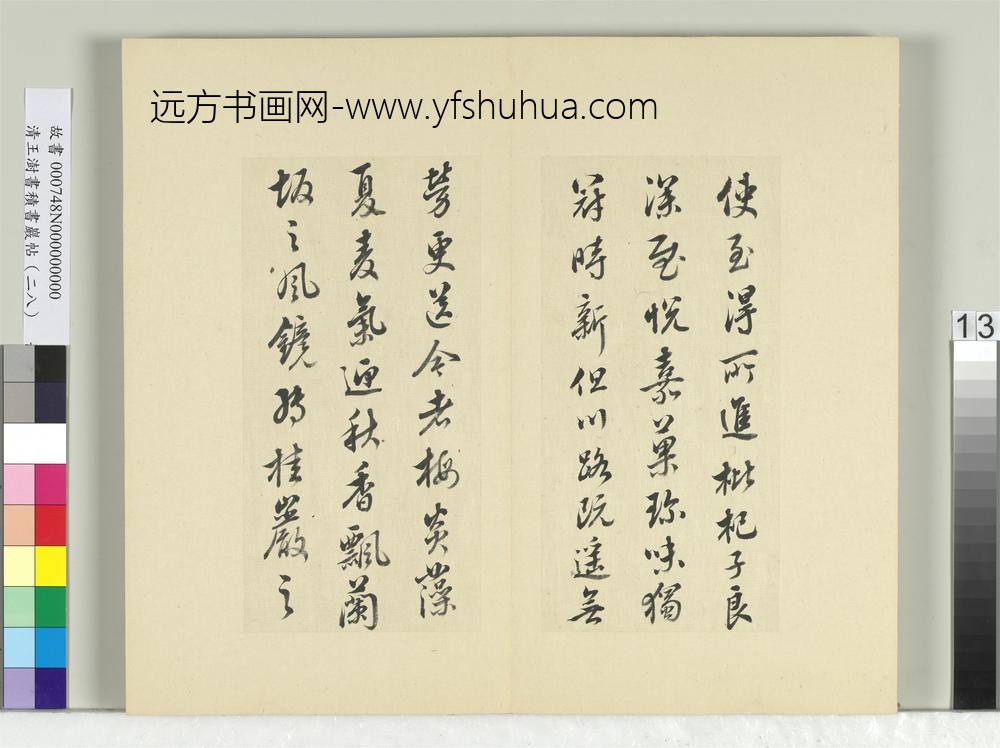 远方书画网-www.yfshuhua.com
使至得所進枇杷子良
深慰悦嘉菓珍味獨
冠時新但川路既遥無
勞更送今者梅炎藻
夏麦氣迎秋香飄蘭
坂之風鏡轉桂巖之
故書 000748N000000000
清王澍書積書巖帖(二八)
13